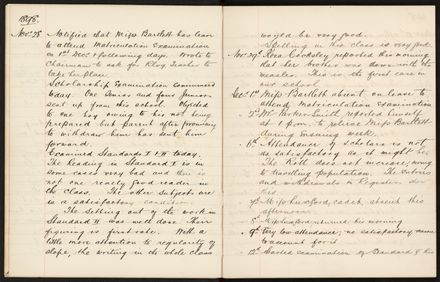 1898.
Nov. 28 Notified that Miss Bartlett has leave
to attend Matriculation Examination
on 1st Dec. & following days. Wrote to
Chairman to ask for Relvg Teacher to
take her place.
Scholarship Examination commenced
today. One senior and four juniors
sent up from this school. Objected
to one boy owing to his not being
prepared but parent after promising
to withdraw him has sent him
forward.
Examined Standards I & II today.
The Reading in Standard I is in
some cases very bad and there is
not one really good reader in
the class. The other subjects are
in a satisfactory condition.
The setting out of the work in
Standard II was well done. Their
figuring is first rate. With a
little more attention to regularity of
slope, the writing in the whole class
would be very good.
Spelling in this class is very good
Nov. 29th Rose Cooksley reported this morning
that her brother was down with the
measles. This is the first case in
our school.
Dec. 1st Miss Bartlett absent on leave to
attend Matriculation Examination
5th reported himself
at 1 p.m. to relieve Miss Bartlett
during ensuing week.
6th Attendance of scholars is not
as satisfactory as it might be.
The Roll does not increase, owing
to travelling population. The entries
and withdrawals in Register show
this.
7th cadet, absent this
afternoon.
8th returned this morning
9th Very low attendance; no satisfactory reason
to account for it.
12th Started examination of Standard